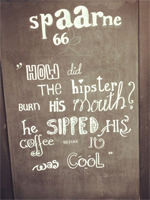 spaarne
66
"HOW did
the hipster
BURN HIS mouth?
he SIPPED HIS
coffee BEFORE IT
was COOL"